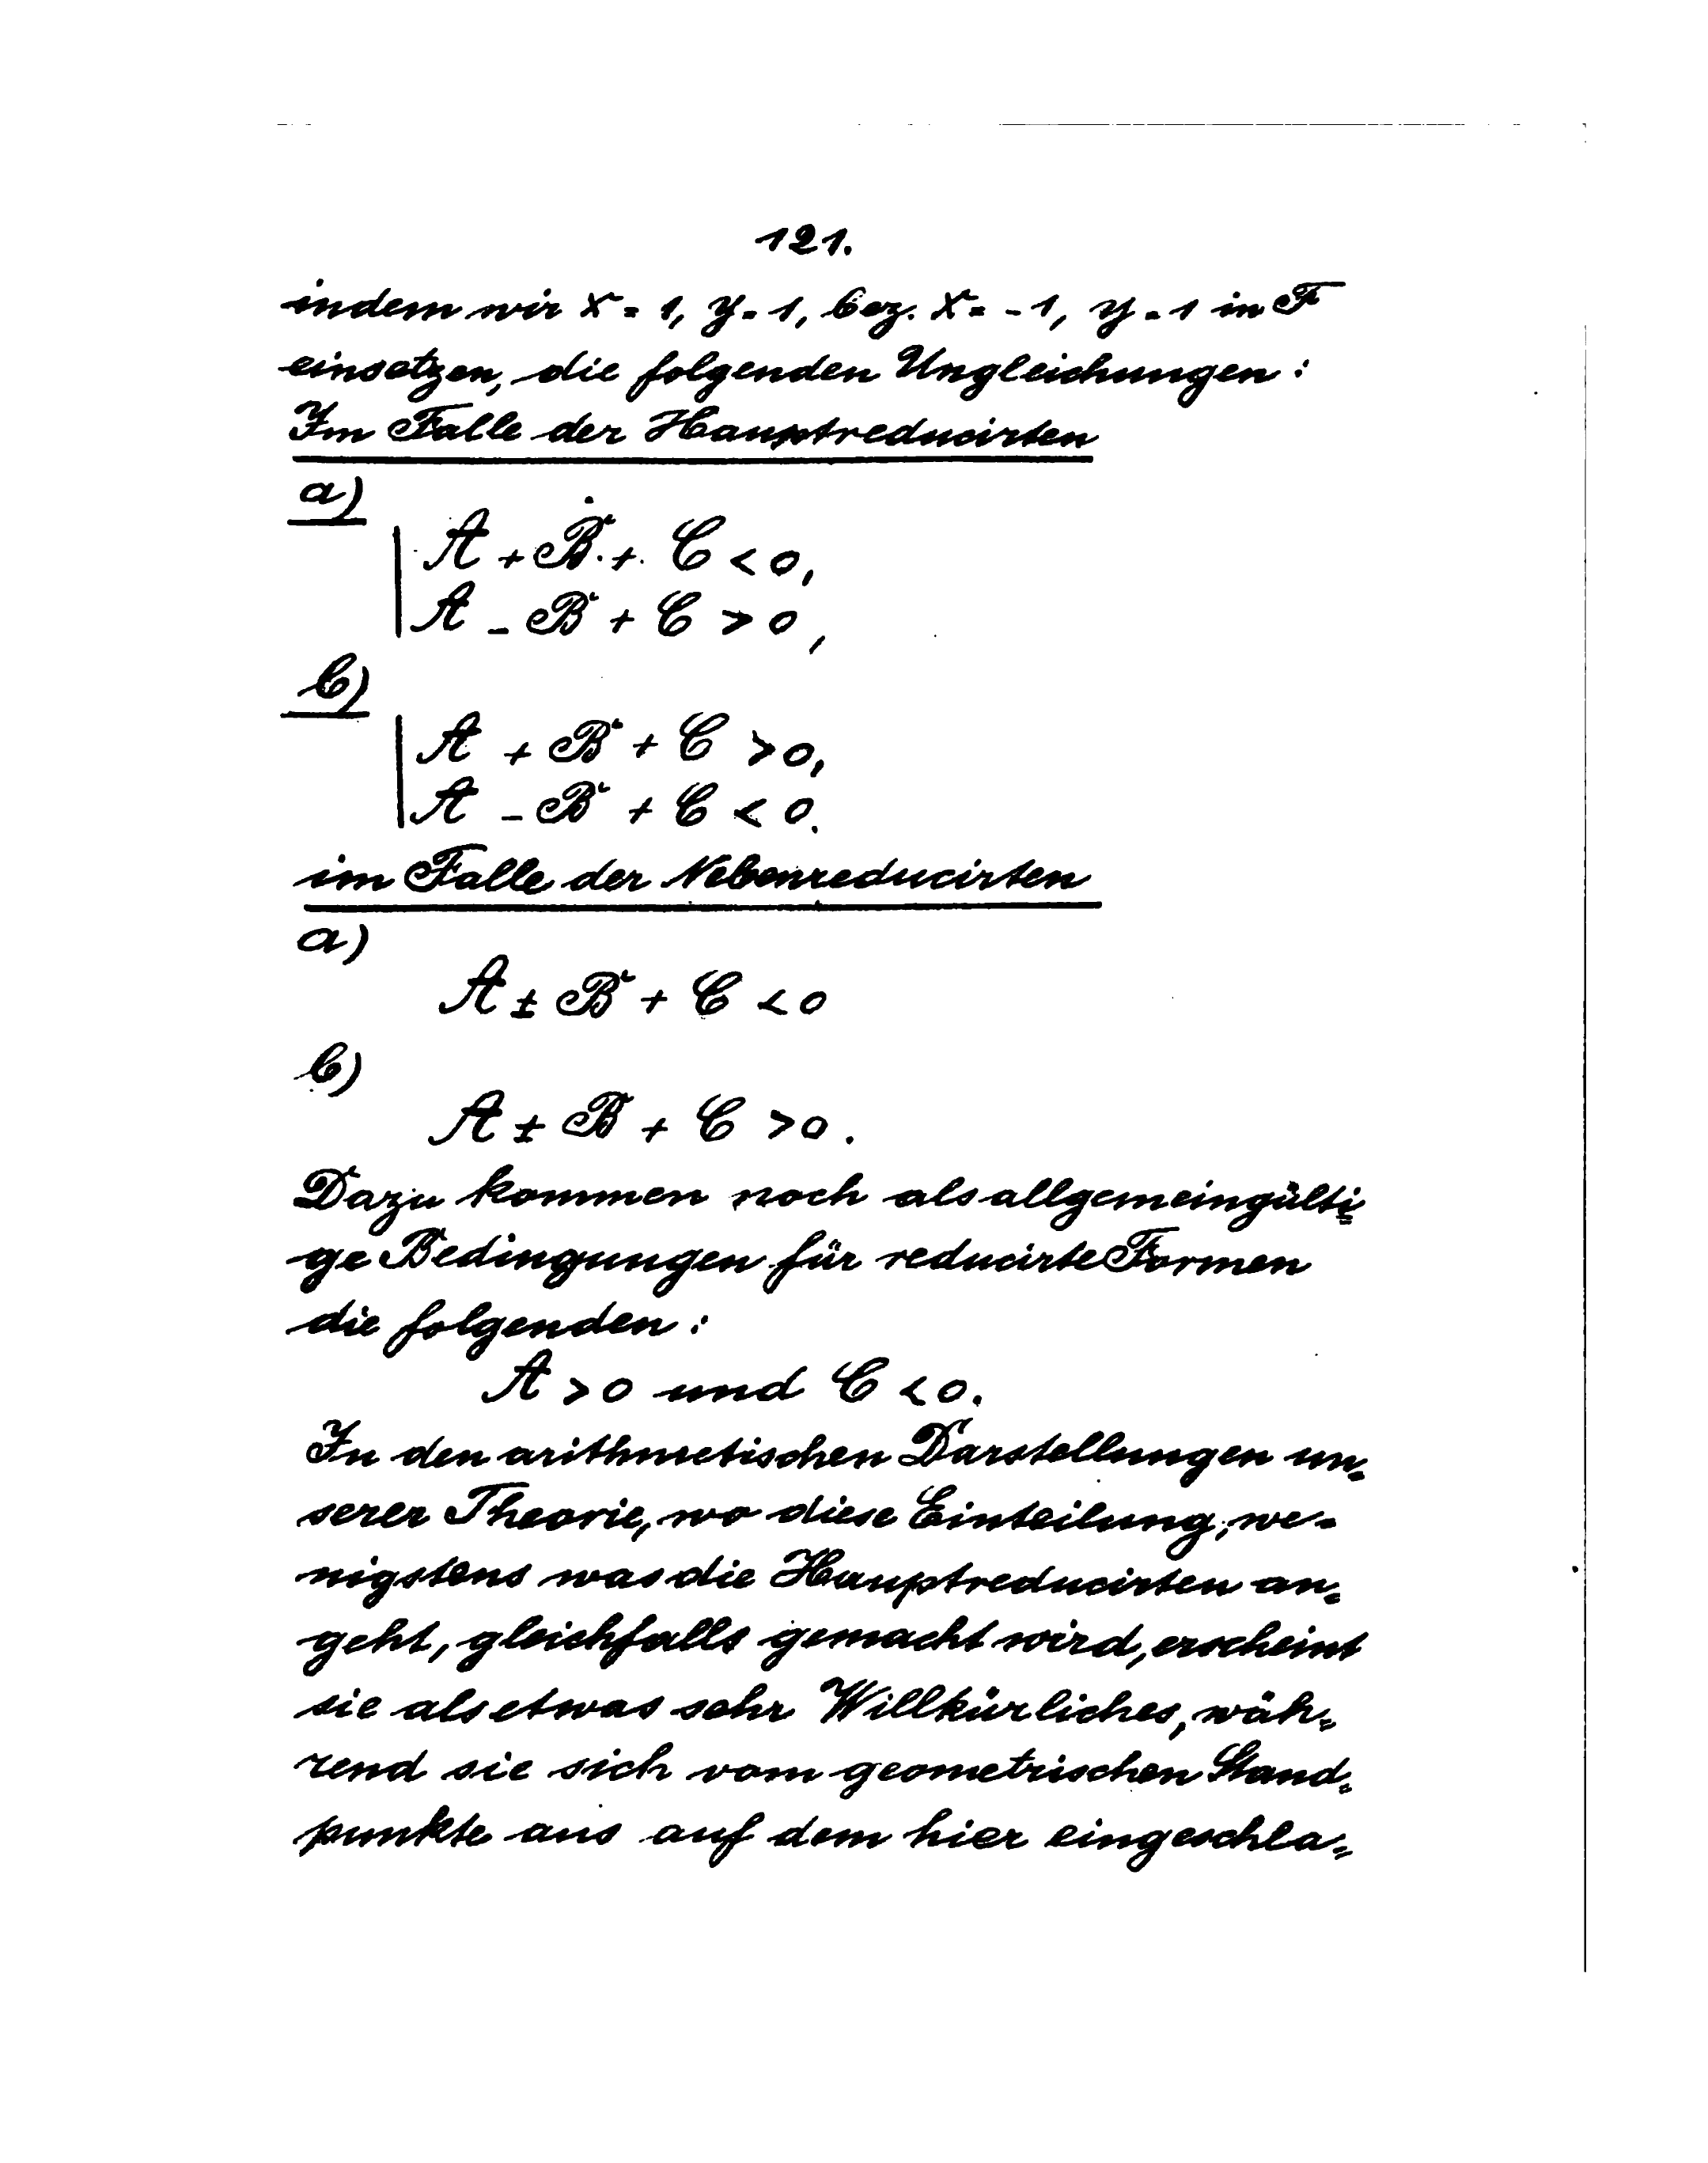 121.
indem wir x = 1, y = 1, bez. x = -1, y = 1 in F
einsetzen, die folgenden Ungleichungen:
Im Falle der Hauptreducirten
a)
A + B + C < 0,
A - B + C > 0,
b)
A + B + C > 0,
A - B + C < 0.
im Falle der Nebenreducirten
a)
A ± B + C < 0
b)
A ± B + C > 0.
Dazu kommen noch als allgemeingülti=
ge Bedingungen für reducirte Formen
die folgenden:
A > 0 und C < 0.
In den arithmetischen Darstellungen un=
serer Theorie, wo diese Einteilung, we=
nigstens was die Hauptreducirten an=
geht, gleichfalls gemacht wird, erscheint
sie als etwas sehr Willkürliches, wäh=
rend sie sich vom geometrischen Stand=
punkte aus auf dem hier eingeschla=